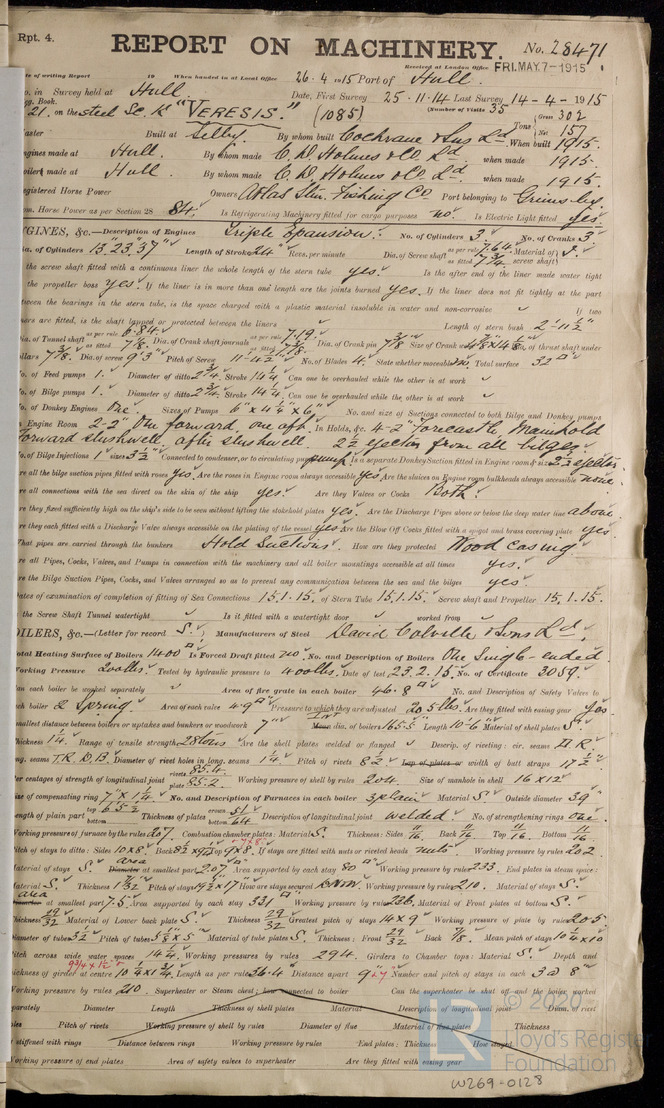 Rpt. 4.
REPORT ON MACHINERY.
No. 28471
Received at London Office FRI. MAY. 7 - 1915
of writing Report 19 When handed in at Local Office 26 . 4 1915 Port of Hull.
in Survey held at Hull. Date, First Survey 25 . 11 . 14 Last Survey 14 - 4 - 1915
Book. (Number of Visits 35
21. on the Steel Sc. K "VERESIS." (1085) Tons Gross 302
Net 157
Master Built at Selby. By whom built Cochrane & Sons Ld. When built 1915.
Engines made at Hull. By whom made C. D. Holmes & Co Ld. when made 1915.
Boilers made at Hull. By whom made C. D. Holmes & Co Ld. when made 1915.
Registered Horse Power Owners Atlas Stm. Fishing Co Port belonging to Grimsby.
Nom. Horse Power as per Section 28 84. Is Refrigerating Machinery fitted for cargo purposes no. Is Electric Light fitted yes.
ENGINES, &c.—Description of Engines Triple Expansion. No. of Cylinders 3 No. of Cranks 3
Dia. of Cylinders 13" 23" 37" Length of Stroke 24" Revs. per minute Dia. of Screw shaft as per rule 7.64 as fitted 7 3/4 Material of screw shaft S.
the screw shaft fitted with a continuous liner the whole length of the stern tube yes. Is the after end of the liner made water tight
the propeller boss yes. If the liner is in more than one length are the joints burned yes. If the liner does not fit tightly at the part
between the bearings in the stern tube, is the space charged with a plastic material insoluble in water and non-corrosive If two
liners are fitted, is the shaft lapped or protected between the liners Length of stern bush 2'-11 1/2"
Dia. of Tunnel shaft as per rule 6.84 as fitted 7 1/8 Dia. of Crank shaft journals as per rule 7.19 as fitted Dia. of Crank pin 7 3/8 Size of Crank webs Dia. of thrust shaft under
collars 7 3/8. Dia. of screw 9'3" Pitch of Screw No. of Blades 4. State whether moveable no. Total surface 32
No. of Feed pumps 1. Diameter of ditto 2 3/4. Stroke 14 1/4. Can one be overhauled while the other is at work
No. of Bilge pumps 1. Diameter of ditto 2 3/4. Stroke 14 1/4. Can one be overhauled while the other is at work
No. of Donkey Engines One. Sizes of Pumps 6" x 4 1/4" x 6" No. and size of Suctions connected to both Bilge and Donkey pumps
Engine Room 2-2" One forward, one aft. In Holds, &c. 4-2" Forecastle, Mainhold
forward slushwell, after slushwell. 2 1/2 ejector from all bilges.
No. of Bilge Injections 1 sizes 3 1/2" Connected to condenser, or to circulating pump pump. Is a separate Donkey Suction fitted in Engine room & size 2 1/2 ejector.
Are all the bilge suction pipes fitted with roses yes. Are the roses in Engine room always accessible yes Are the sluices on Engine room bulkheads always accessible none.
Are all connections with the sea direct on the skin of the ship yes. Are they Valves or Cocks Both
Are they fixed sufficiently high on the ship's side to be seen without lifting the stokehold plates yes. Are the Discharge Pipes above or below the deep water line above
Are they each fitted with a Discharge Valve always accessible on the plating of the vessel yes. Are the Blow Off Cocks fitted with a spigot and brass covering plate yes
What pipes are carried through the bunkers Hold Suctions. How are they protected Wood casing
Are all Pipes, Cocks, Valves, and Pumps in connection with the machinery and all boiler mountings accessible at all times yes.
Are the Bilge Suction Pipes, Cocks, and Valves arranged so as to prevent any communication between the sea and the bilges yes
Dates of examination of completion of fitting of Sea Connections 15.1.15. of Stern Tube 15.1.15. Screw shaft and Propeller 15.1.15.
Is the Screw Shaft Tunnel watertight Is it fitted with a watertight door worked from
BOILERS, &c.—(Letter for record S.) Manufacturers of Steel David Colville & Sons Ld.
Total Heating Surface of Boilers 1400 Is Forced Draft fitted no. No. and Description of Boilers One Single-ended.
Working Pressure 200 lbs. Tested by hydraulic pressure to 400 lbs. Date of test 23.2.15. No. of Certificate 3059.
Can each boiler be worked separately Area of fire grate in each boiler 46.8 No. and Description of Safety Valves to
each boiler 2 Spring. Area of each valve 4.9 Pressure to which they are adjusted 205 lbs. Are they fitted with easing gear yes
Smallest distance between boilers or uptakes and bunkers or woodwork 7" Int. Mean dia. of boilers 165.5 Length 10'-6" Material of shell plates S.
Thickness 1 1/4. Range of tensile strength 28 tons Are the shell plates welded or flanged Descrip. of riveting: cir. seams D.R.
long. seams T.R. D.B. Diameter of rivet holes in long. seams 1 1/4. Pitch of rivets 8 1/2 Lap of plates or width of butt straps 17
Per centages of strength of longitudinal joint rivets 85.4. plate 85.2. Working pressure of shell by rules 204. Size of manhole in shell 16 x 12
Size of compensating ring 7" x 1 1/4. No. and Description of Furnaces in each boiler 3 plain Material S. Outside diameter 39"
Length of plain part top bottom Thickness of plates crown bottom Description of longitudinal joint welded. No. of strengthening rings one
Working pressure of furnace by the rules 207. Combustion chamber plates: Material S. Thickness: Sides 11/16 Back 11/16 Top 11/16. Bottom 11/16
Pitch of stays to ditto: Sides 10 x 8. Back 8 1/2 x 9 Top 9 x 8. If stays are fitted with nuts or riveted heads nuts. Working pressure by rules 202
Material of stays S. area Diameter at smallest part 2.07 Area supported by each stay 80 Working pressure by rules 233. End plates in steam space:
Material S. Thickness Pitch of stays 19 1/2 x 17 How are stays secured Working pressure by rules 210. Material of stays S.
area Diameter at smallest part 7.5 Area supported by each stay 331 Working pressure by rules 236. Material of Front plates at bottom S.
Thickness 29/32 Material of Lower back plate S. Thickness 29/32 Greatest pitch of stays 14 x 9 Working pressure of plate by rules 205
Diameter of tubes 3 1/2 Pitch of tubes Material of tube plates S. Thickness: Front 29/32 Back 7/8. Mean pitch of stays 10 1/4 x 10
Pitch across wide water spaces 14 1/4. Working pressures by rules 294. Girders to Chamber tops: Material S. Depth and
thickness of girder at centre Length as per rule 36.4 Distance apart 9 Number and pitch of stays in each 3 @ 8"
Working pressure by rules 210. Superheater or Steam chest; how connected to boiler Can the superheater be shut off and the boiler worked
separately Diameter Length Thickness of shell plates Material Description of longitudinal joint Diam. of rivet
holes Pitch of rivets Working pressure of shell by rules Diameter of flue Material of flue plates Thickness
If stiffened with rings Distance between rings Working pressure by rules End plates: Thickness How stayed
Working pressure of end plates Area of safety valves to superheater Are they fitted with easing gear
© 2020
Lloyd's Register
Foundation
W269-0128